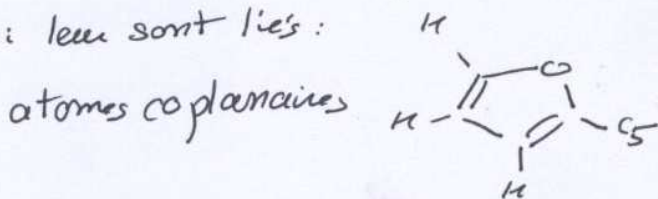 : leur sont liés :
atomes coplanaires
H
O
H
C5
H